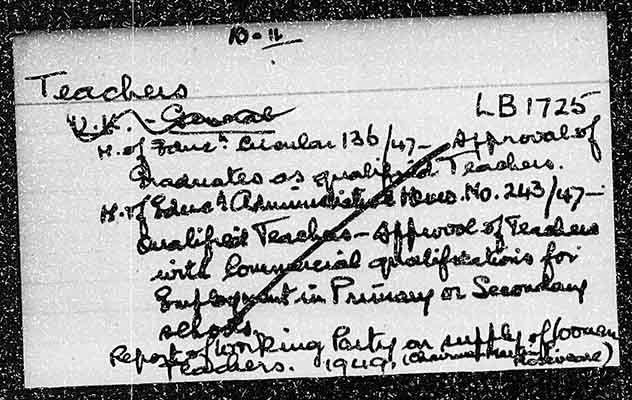 10-11
Teachers
U.K. - General
LB1725
M. of Educn. Circular 136/47 - Approval of
Graduates as qualified Teachers.
M. of Educn. Administrative Memo. No. 243/47 -
Qualified Teachers - Approval of Teachers
with Commercial qualifications for
Employment in Primary or Secondary
schools.
Report of Working Party on supply of Women
Teachers. 1949. (Chairman Roseveare)